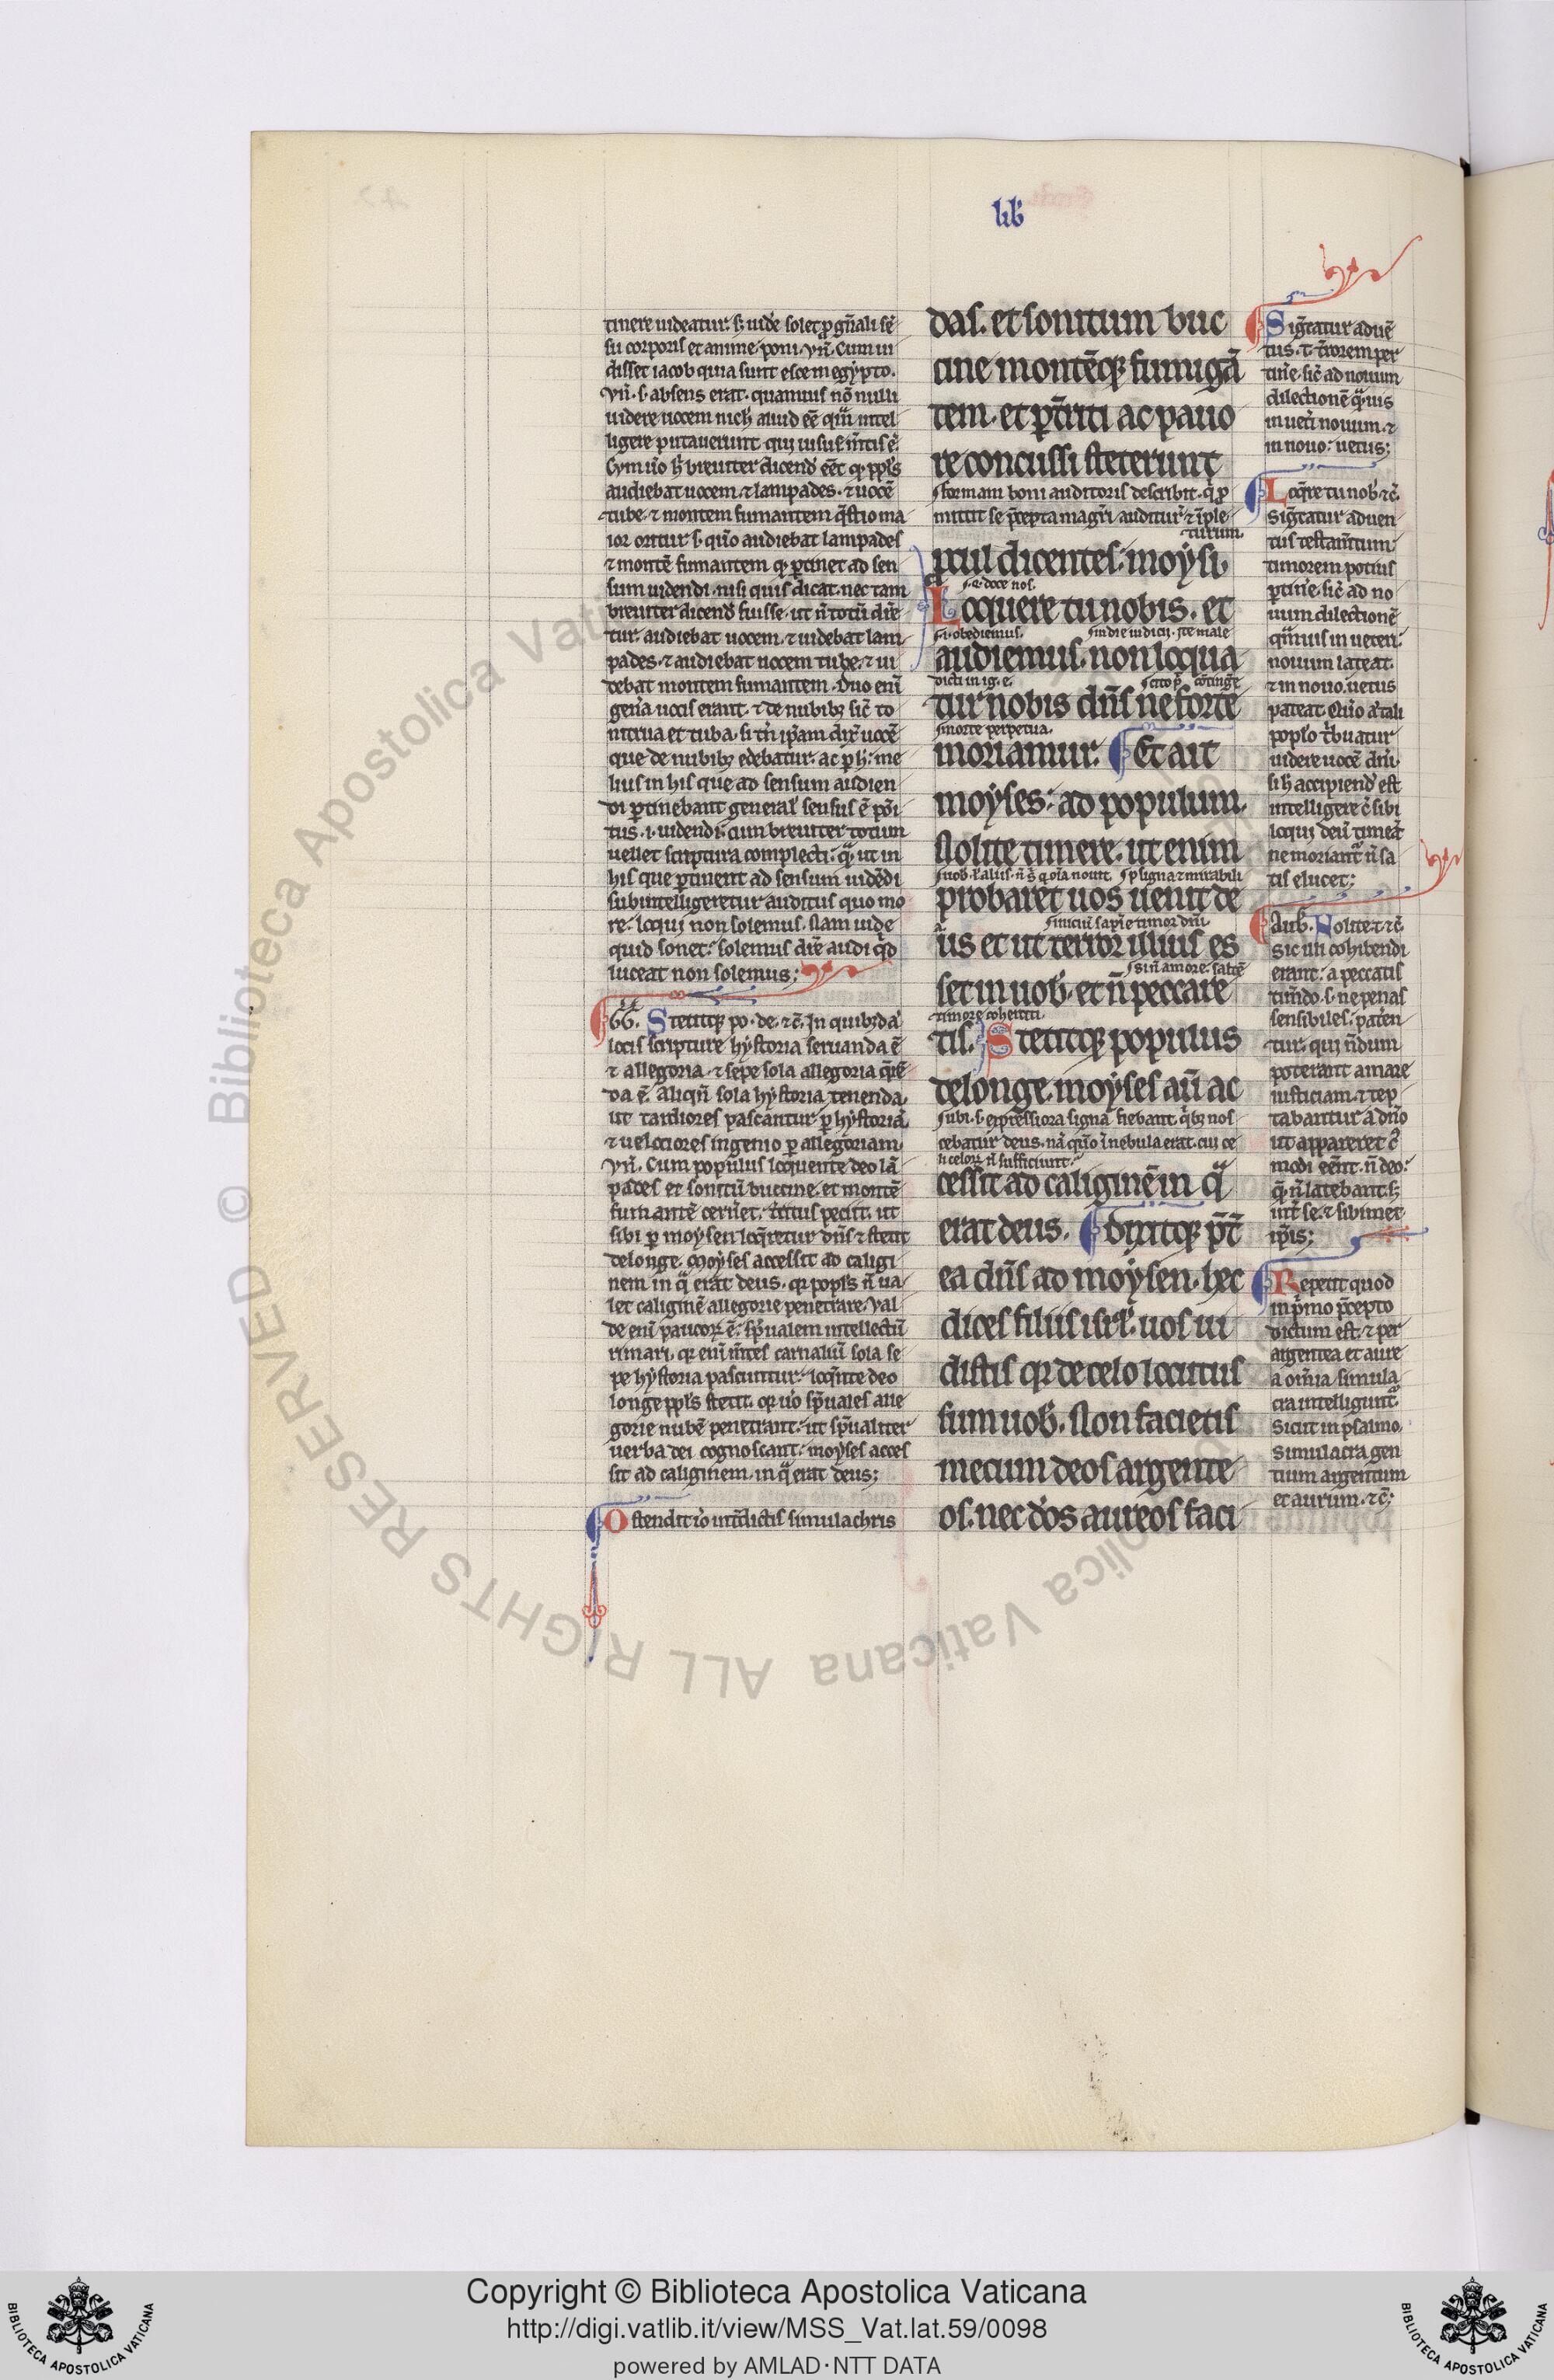 lib̄
tinere uideatur. s; uid'e solet ꝓ gn̄ali sē
su corporis et anime poni. vn̄. Cum ui
disset iacob quia sunt esce in egypto.
vn̄. s. absens erat. quamuis nō nulli
uidere uocem nich' aliud eē quā intel
ligere putauerunt. qui uisus m̄tis ē.
Cum u'o h' breuiter dicend' eēt qꝛ ppl's
audiebat uocem ⁊ lampades. ⁊ uocē
tube. ⁊ montem fumantem q̄stio ma
ior oritur. s. quo audiebat lampades
⁊ montē fumantem qꝛ ꝑtinet ad sen
sum uidendi. nisi quis dicat. nec tam
breuiter dicend' fuisse. ut n̄ totū dic̄e
tur. audiebat uocem. ⁊ uidebat lam
pades. ⁊ audiebat uocem tube. ⁊ ui
debat montem fumantem. Duo eni
gen̄a uocis erant. ⁊ de nubibꝫ sic̄ to
nitrua et tuba. si tn̄ ip̄am dix̄ uocē
que de nubibꝫ edebatur. ac ꝑ h'. me
lius in his que ad sensum audien
di ꝑtinebant general' sensus ē po'i
tus. i. uidendi. cum breuiter totum
uellet scriptura complecti. quā ut in
his que ꝑtinent ad sensum uidēdi
subintelligeretur auditus quo mo
re. loqui non solemus. Nam uide
quid sonet. solemus dic̄e audi qd̄
luceat non solemus;
GG. Stetitqꝫ po. de. ⁊c̄. In quibꝫdā
locis scripture hystoria seruanda ē
⁊ allegoria. ⁊ sepe sola allegoria q̄rē
da ē. aliqn̄ sola hystoria tenenda.
ut tardiores pascantur ꝑ hystoriā
⁊ uelociores ingenio ꝑ allegoriam.
vn̄. Cum populus loquente deo lā
pades et sonitū buccine. et montē
fumantē cern̄et. territus peciit. ut
sibi ꝑ moysen loq̄retur dn̄s ⁊ stetit
delonge. Moyses accessit ad caligi
nem in q̄ erat deus. qꝛ popl's n̄ ua
let caliginē allegorie penetrare. Val
de eni paucoꝝ ē. sp̄ualem intellectū
rimari. qꝛ eni m̄tes carnaliū sola se
pe hystoria pascuntur. loq̄nte deo
longe ppl's stetit. qꝛ u'o sp̄uales alle
gorie nubē penetrant. ut sp̄ualiter
uerba dei cognoscant. moyses acces
sit ad caliginem. in q̄ erat deus;
Ostendit io' int̄dictis simulachris
das. et sonitum buc
cine montēqꝫ fumigā
tem. et ꝑt̄riti ac pauo
re concussi steterunt
formam boni auditoris describit. q̄ ꝓ
mittit se p̄cepta magr̄i auditur̄ ⁊ īple
turum.
ꝓcul dicentes. moysi.
.s. doce nos.
Loquere tu nobis. et
.s. obediemus. in die iudicii. ite male
audiemus. non loqua
dicti in ig. e.
tur nobis dn̄s ne forte
morte perpetua.
moriamur. Et ait
moyses. ad populum.
Nolite timere. ut enim
probaret uos uenit de
inicium sapīe timor dn̄i.
us et ut terror illius es
si n̄ amore. saltē
set in uob'. et n̄ peccare
timore coherciti.
tis. Stetitqꝫ populus
delonge. moyses aū ac
ubi. s. expressiora signa fiebant q̄bꝫ nos
cebatur deus. nā quo ī nebula erat. cui ce
li celoꝝ n̄ sufficiunt.
cessit ad caliginē in qā
erat deus. Dixitqꝫ p̄t̄
ea dn̄s ad moysen. hec
dices filiis isrl'. uos ui
distis qꝛ de celo locutus
sum uob'. Non facietis
mecum deos argente
os. nec d'os aureos faci
Sig̅tatur ad ue'
tus. t. t̄rorem per
tin̄e. sic̄ ad nouum
dilectionē. q̄uis
in uet̄i nouum. ⁊
in nouo. uetus;
Loq̄re tu nob' ⁊c̄.
Sig̅tatur ad uen
tus testam̄tum
timorem potius
ꝑtin̄e. sic̄ ad no
uum dilectionē
quāuis in ueteri.
nouum lateat.
⁊ in nouo. uetus
pateat. Quo a' tali
poplo t'buatur
uidere uocē dn̄i.
si h' accipiend' est
intelligere c' sibi
loqui deū timeāt
ne moriantᷣ n̄ sa
tis elucet;
Aub. Nolite t. ⁊c̄.
Sic illi cohibendi
erant. a peccatis
tim̄do. s. ne penas
sensibiles. paten
tur. qui n̄dum
poterant amare
iusticiam. ⁊ tep
tabantur a dn̄o
ut appareret c'
modi eēnt. n̄ deo.
q̄ n̄ latebant. s;
int̄ se. ⁊ sibimet
ip̄is;
Repetit quod
in p̄mo p̄cepto
dictum est. ⁊ per
argentea et aure
a om̄ia simula
cra intelliguntᷣ
Sicut in psalmo.
Simulacra gen
tium argentum
et aurum. ⁊c̄.
© Biblioteca Apostolica Vaticana ALL RIGHTS RESERVED
Copyright © Biblioteca Apostolica Vaticana
http://digi.vatlib.it/view/MSS_Vat.lat.59/0098
powered by AMLAD·NTT DATA
BIBLIOTECA APOSTOLICA VATICANA
BIBLIOTECA APOSTOLICA VATICANA